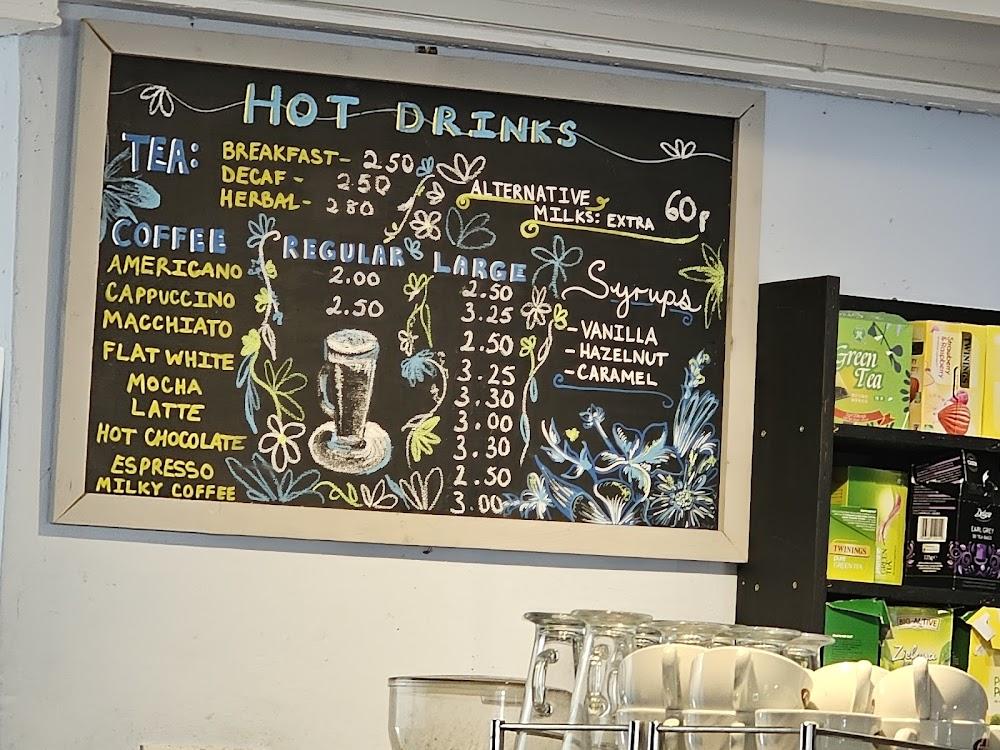 HOT DRINKS
TEA: BREAKFAST- 2.50
DECAF - 2.50
HERBAL- 2.80
ALTERNATIVE
MILKS: EXTRA 60p
COFFEE REGULAR LARGE
AMERICANO 2.00 2.50
CAPPUCCINO 2.50 3.25
MACCHIATO 2.50
FLAT WHITE 3.25
MOCHA 3.30
LATTE 3.00
HOT CHOCOLATE 3.30
ESPRESSO 2.50
MILKY COFFEE 3.00
Syrups
- VANILLA
- HAZELNUT
- CARAMEL
Green
Tea
Strawberry
& Raspberry
TWININGS
TWININGS
GREEN TEA
GREEN TEA
EARL GREY
BIO-ACTIVE
Zielona